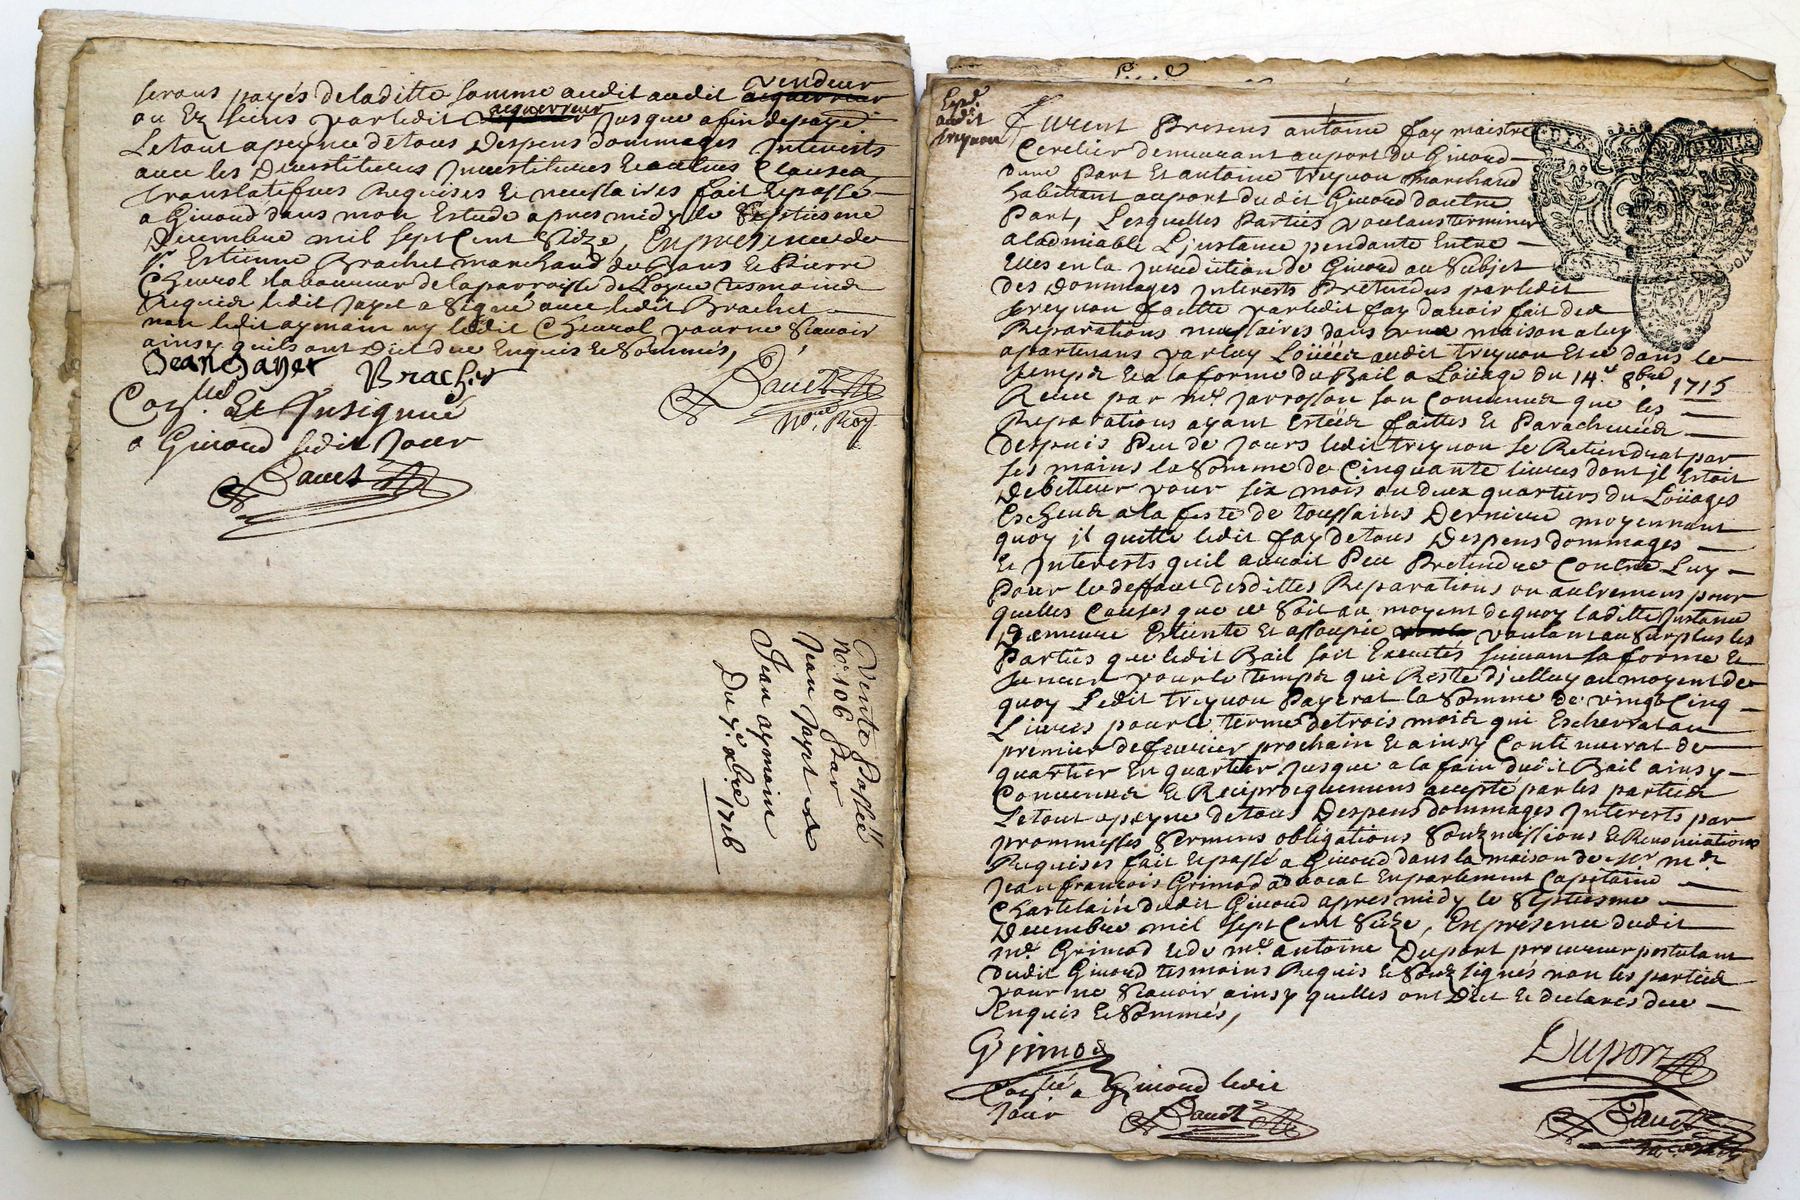 serons payés de laditte somme audit audit acquerreur vendeur
ou Ez siens par ledit acquerreur jusque a fin de payé
Le tout a peyne de tous Despens dommages Interests
avec les Devestitures Investitures & autres Clauses
translatifves Requises & necessaires fait & passé
a Givord dans mon Estude apres midy le Septiesme
Decembre mil sept Cent Seize, En presence de
Sr. Estienne Brachet marchand de & Pierre
laboureur de la parroisse de tesmoins
Requis ledit Jayet a signé avec ledit Brachet
non ledit aymain ny ledit pour ne Scavoir
ainsy quils ont Dict de ce Enquis & Sommés,
Jean Jayet Brachet
Et Insignué
a Givord ledit Jour
nore. Roy
Vente Passée
No. 106 Par
Jean Jayet a
Jean aymain
Du 7e. xbre 1716
Expd.
audit
treynon
Furent Presens antoine fay maistre
Cerclier demeurant au port de Givord
dune Part Et antoine treynon marchand
habittant au port dudit Givord dautre
Part, Lesquelles Parties voulans terminer
a ladmiable L'Instance pendante Entre
Elles en la Jurediction de Givord au Subjet
des Dommages Interests Pretendus par ledit
treynon faitte par ledit fay davoir fait des
Reparations necessaires dans une maison a luy
apartenans par luy Loüée audit treynon Et ce dans le
temps & a la forme du Bail a Loüage du 14e. 8bre 1715
Receu par me. Jarrosson son Comme que les
Reparations ayant Estées faittes & Parachevées
despuis Peu de Jours ledit treynon se Retiendrat par
ses mains la Somme de Cinquante livres dont jl Estoit
Debitteur pour six mois ou deux quartiers du Loüages
Escheus a la feste de toussains Derniere moyennant
quoy jl quitte ledit fay de tous Despens dommages
& Interests quil auroit Peu Pretendre Contre Luy
Pour le deffaut desdittes Reparations ou autrement pour
quelles Causes que ce Soit au moyent dequoy laditte Instance
Demeure Esteinte Et assoupie voulant au Surplus les
Parties que ledit Bail soit Executés suivant sa forme &
teneur pour le temps qui Reste dicelluy au moyent de
quoy Ledit treynon Payerat la Somme de vingt Cinq
Livres pour le terme de trois mois qui Escherrat au
premier de fevrier prochain & ainsy Continuerat de
quartier En quartier Jusque a la fain dudit Bail ainsy
Convenus & Reciprocquemens accepté par les parties
Le tout a peyne de tous Despens dommages Interests par
prommesses Sermens obligations Soubzmissions & Renonciations
Requises fait & passé a Givord dans la maison de
Jean francois Grimod advocat En parlement Capitaine
Chastelain dudit Givord apres midy le Septiesme
Decembre mil sept Cent Seize, En presence dudit
me. Grimod & de me. antoine Duport procureur postulant
dudit Givord tesmoins Requis & Soubzsignés non les parties
pour ne Scavoir ainsy quelles ont Dict & declarés de ce
Enquis & Sommés,
Grimod Duport
a Givord ledit
Jour